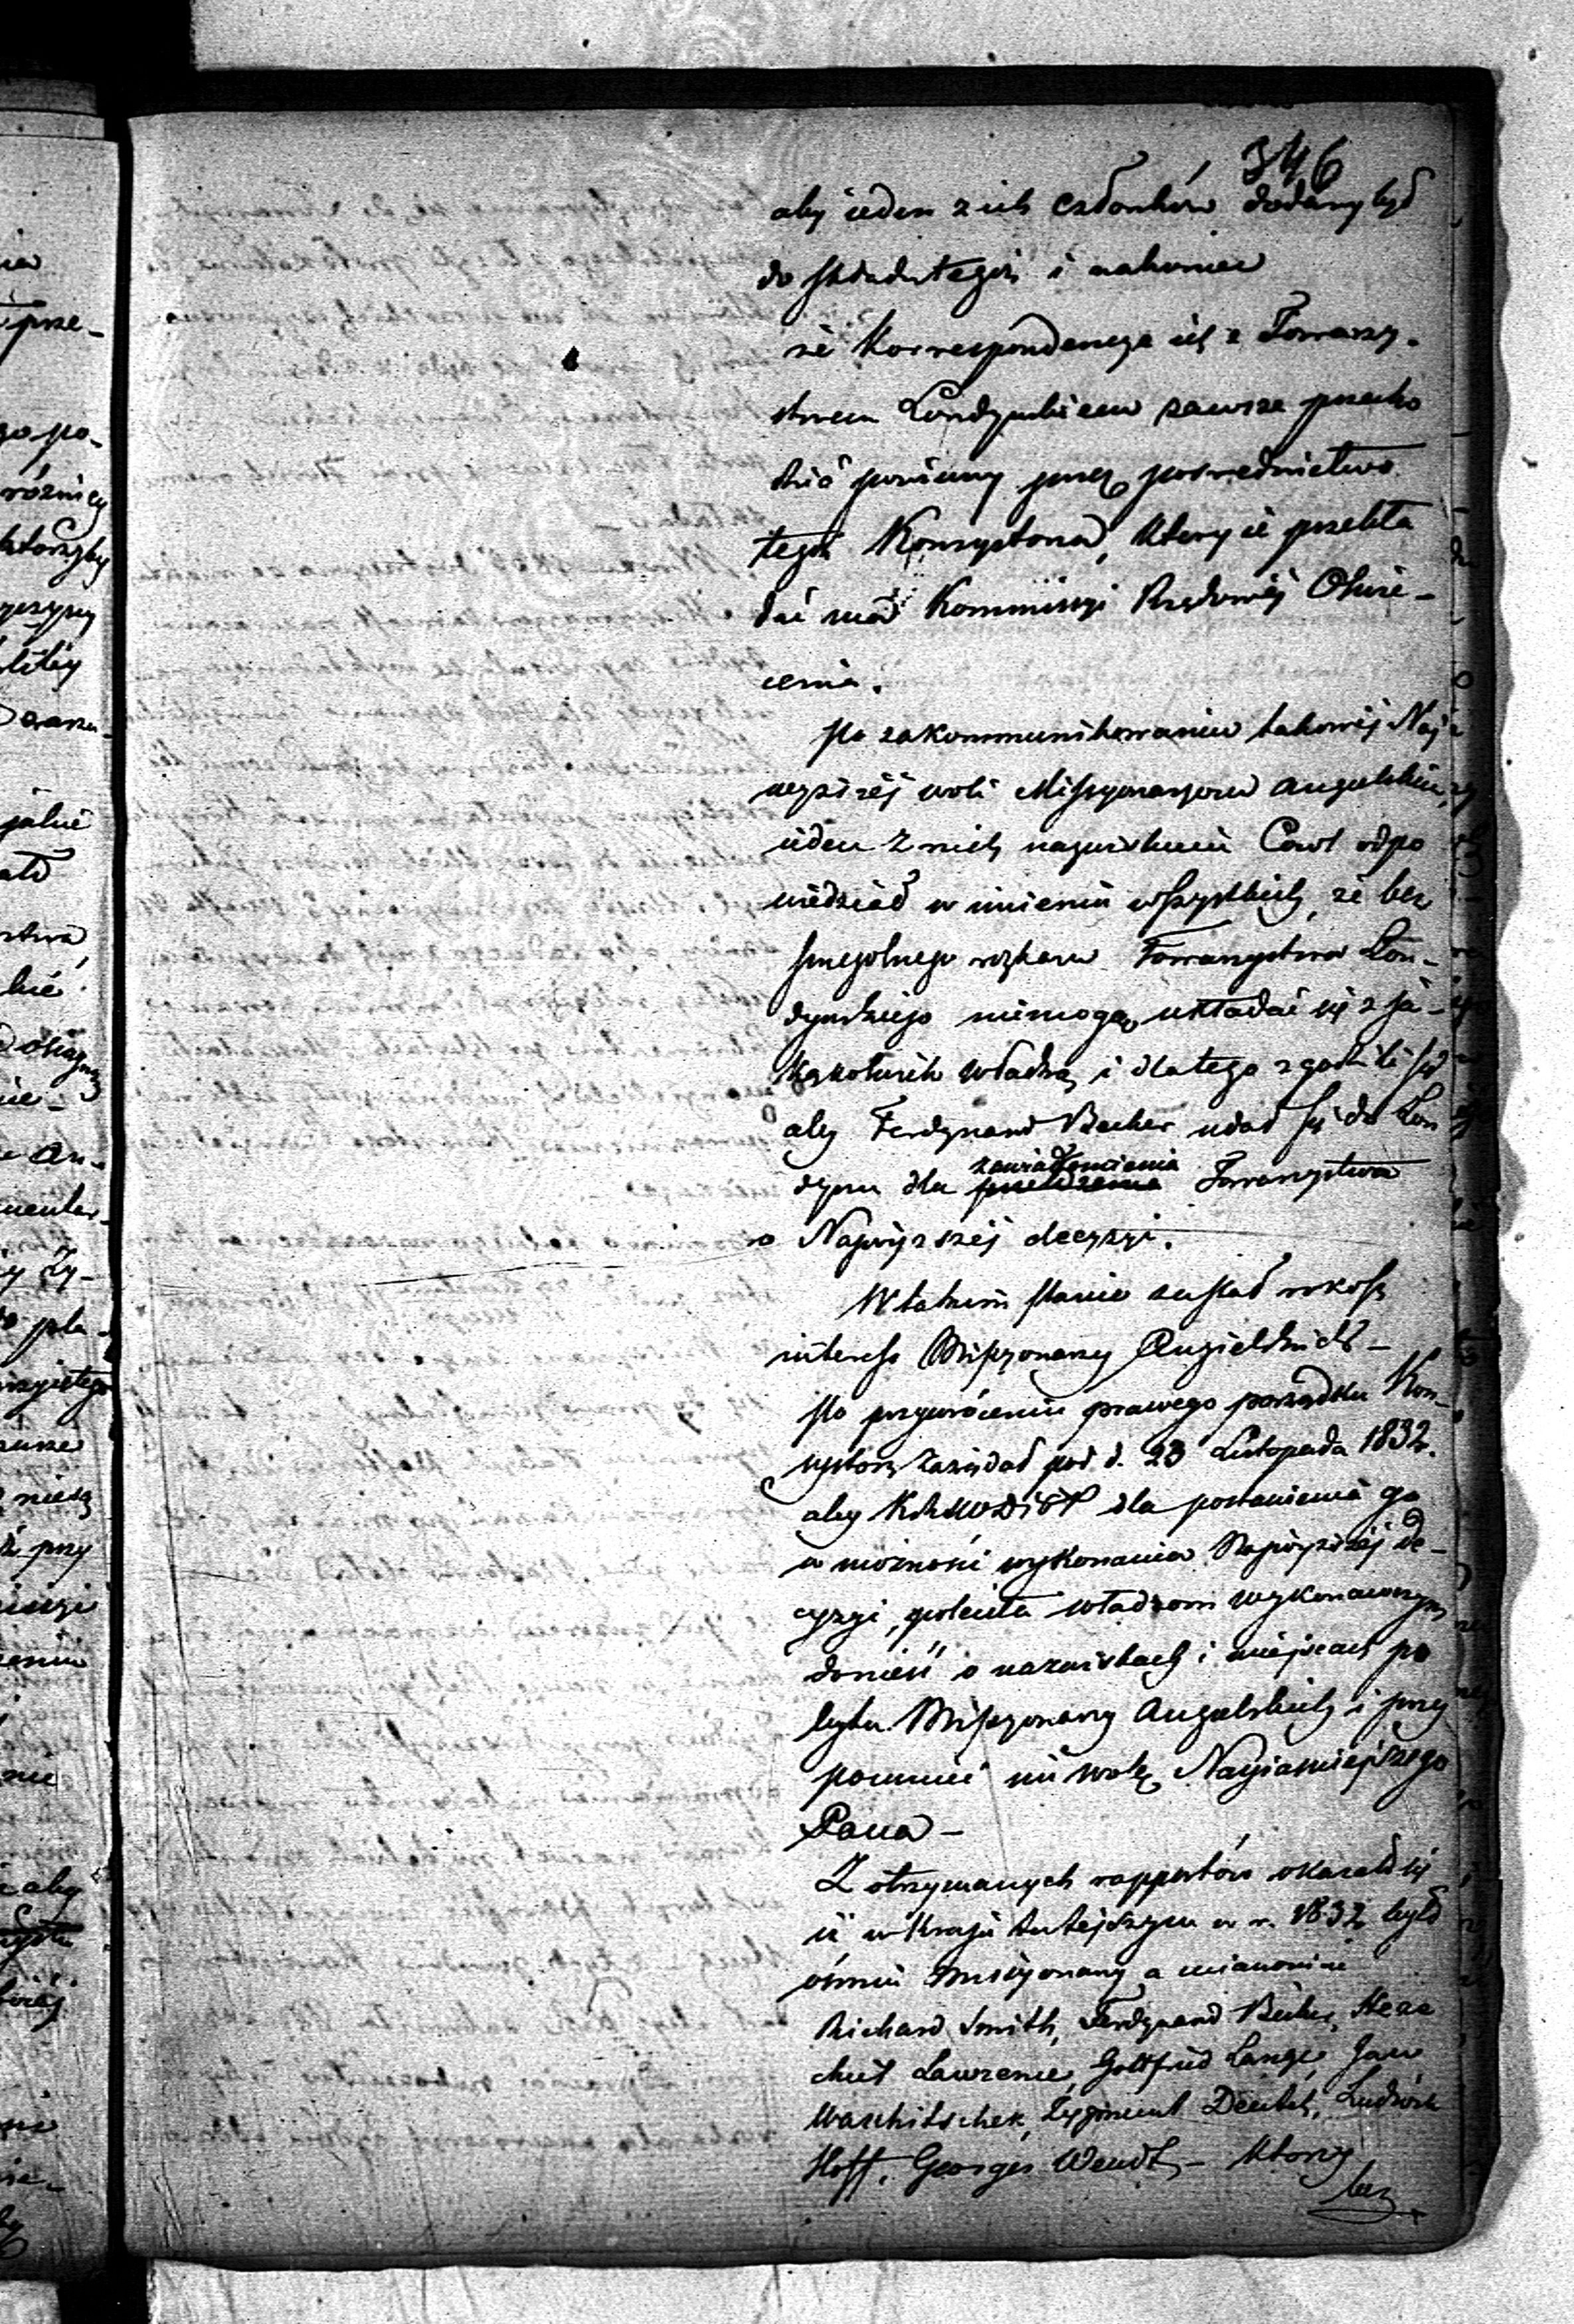 346
aby ieden z ich członków dodany był
do składu tegoż i nakoniec
że Korrespondencya ich z Towarzy-
stwem Londyńskiem zawsze przecho
dzić powinny przez posrednictwo
tegoż Konsystorza, który ie przekła
dać ma Kommissyi Rządowéj Oświe-
cenia.
Po zakommunikowaniu takowéj Naj
wyższéj woli Missyonarzom angielskim,
ieden z nich nazwiskiem odpo
wiedział w imieniu wszystkich, że bez
szczególnego rozkazu Towarzystwa Lon-
dyńskiego niemogą układać się z ja-
kąkolwiek władzą i dlatego zgodzili się
aby Ferdynand Becker udał się do Lon
dynu dla zawiadomienia Towarzystwa
o Najwyższéj decyzyi.
W takim stanie zastał rokosz
interess Missyonarzy Angielskich -
Po przywróceniu prawego porządku Kon-
systorz zażądał pod d. 23 Listopada 1832.
aby KRSWDiOP dla postawienia go
w możności wykonania Najwyższéj de-
cyzyi, poleciła władzom wykonawczym
donieść o nazwiskach i miejscach po
bytu Missyonarzy Angielskich i przy
pomnieć im wolę Najjaśniejszego
Pana -
Z otrzymanych rapportów okazało się
iż w Kraju tutejszym w r. 1832 było
ośmiu missyonarzy a mianowicie
Richard Smith, Ferdynand Becker,
Lawrence, Gottfried Lange Jan
Waschitschek, Zygmunt Deutsch, Ludwik
Hoff, Georges Wendt, - którzy
bez